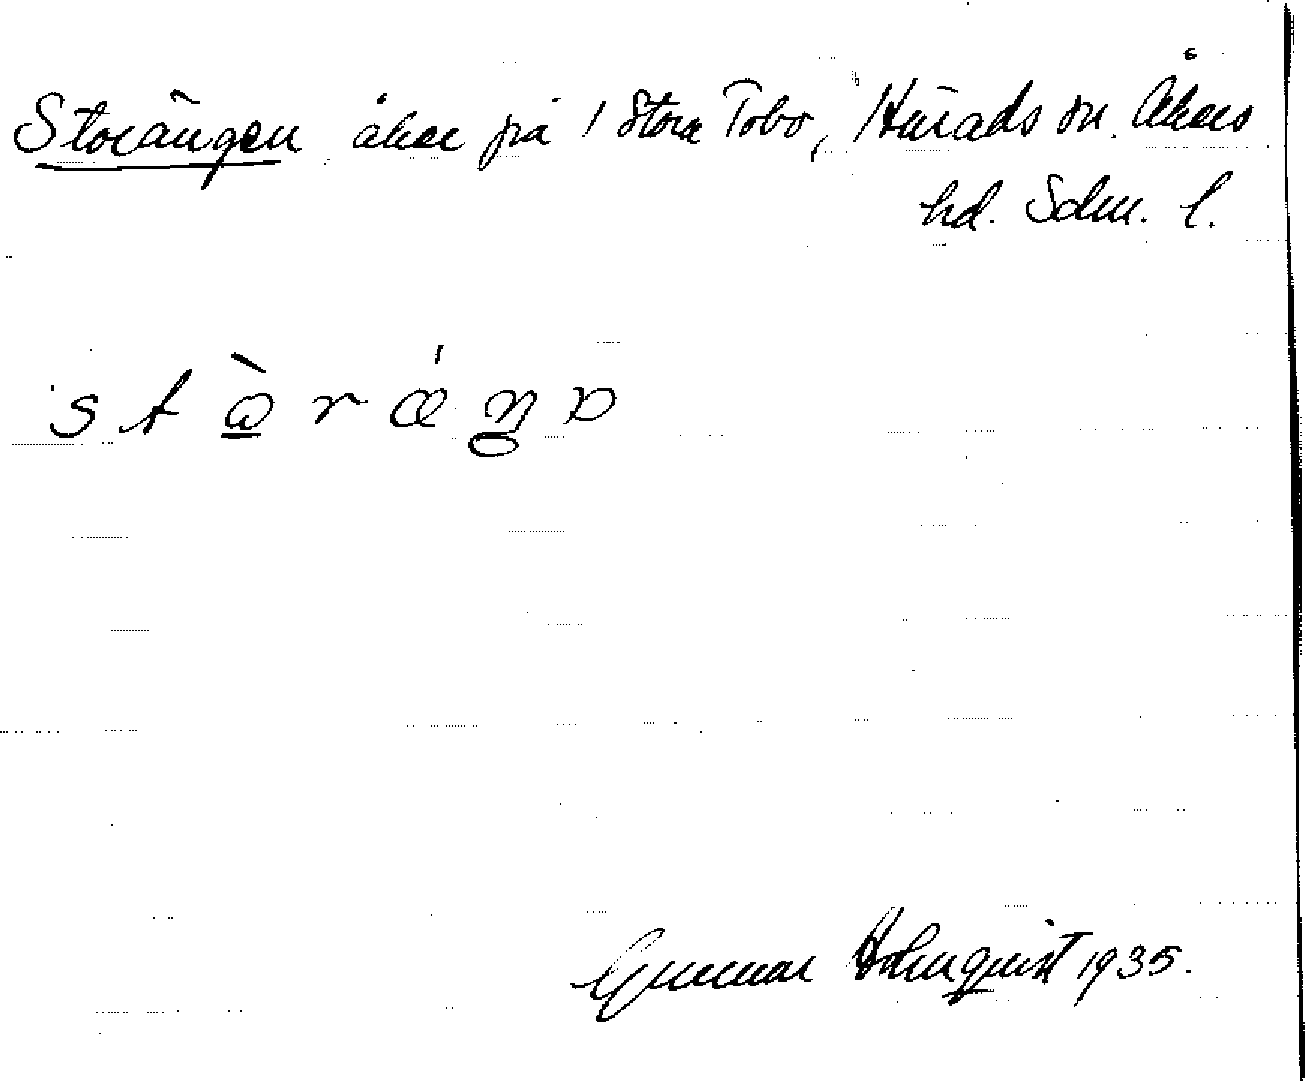 Storängen åker på 1 Stora Tobo, Härads sn. Åkers
hd. Södm. l.
Gunnar Holmquist 1935.